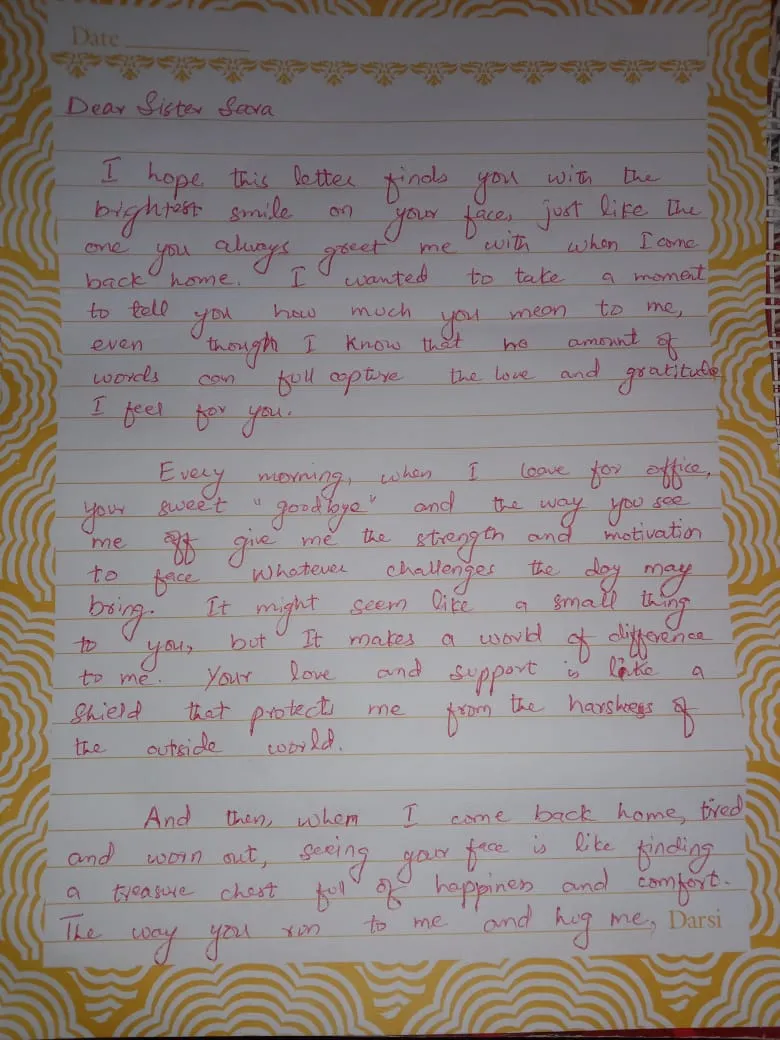 Date
Dear Sister Sara
I hope this letter finds you with the
brightest smile on your face, just like the
one you always greet me with when I come
back home. I wanted to take a moment
to tell you how much you mean to me,
even though I know that no amount of
words can full capture the love and gratitude
I feel for you.
Every morning, when I leave for office,
your sweet "goodbye" and the way you see
me off give me the strength and motivation
to face whatever challenges the day may
bring. It might seem like a small thing
to you, but It makes a world of difference
to me. Your love and support is like a
shield that protects me from the harshess of
the outside world.
And then, when I come back home, tired
and worn out, seeing your face is like finding
a treasure chest full of happiness and comfort.
The way you run to me and hug me,
Darsi